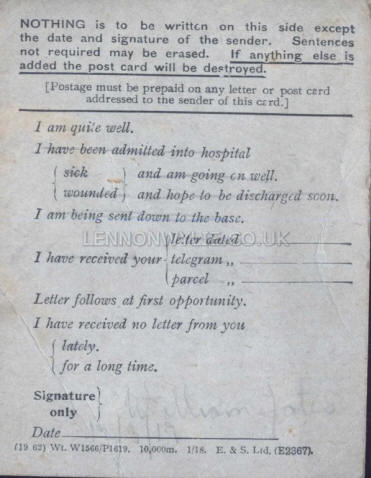 NOTHING is to be written on this side except
the date and signature of the sender. Sentences
not required may be erased. If anything else is
added the post card will be destroyed.
[Postage must be prepaid on any letter or post card
addressed to the sender of this card.]
I am quite well.
I have been admitted into hospital
sick } and am going on well.
wounded } and hope to be discharged soon.
I am being sent down to the base.
LENNONWYLIE.CO.UK
letter dated
I have received your telegram ,,
parcel ,,
Letter follows at first opportunity.
I have received no letter from you
lately.
for a long time.
Signature
only
William
Date
(19 62) Wt. W1566/P1619. 10,000m. 1/18. E. & S. Ltd. (E2367).